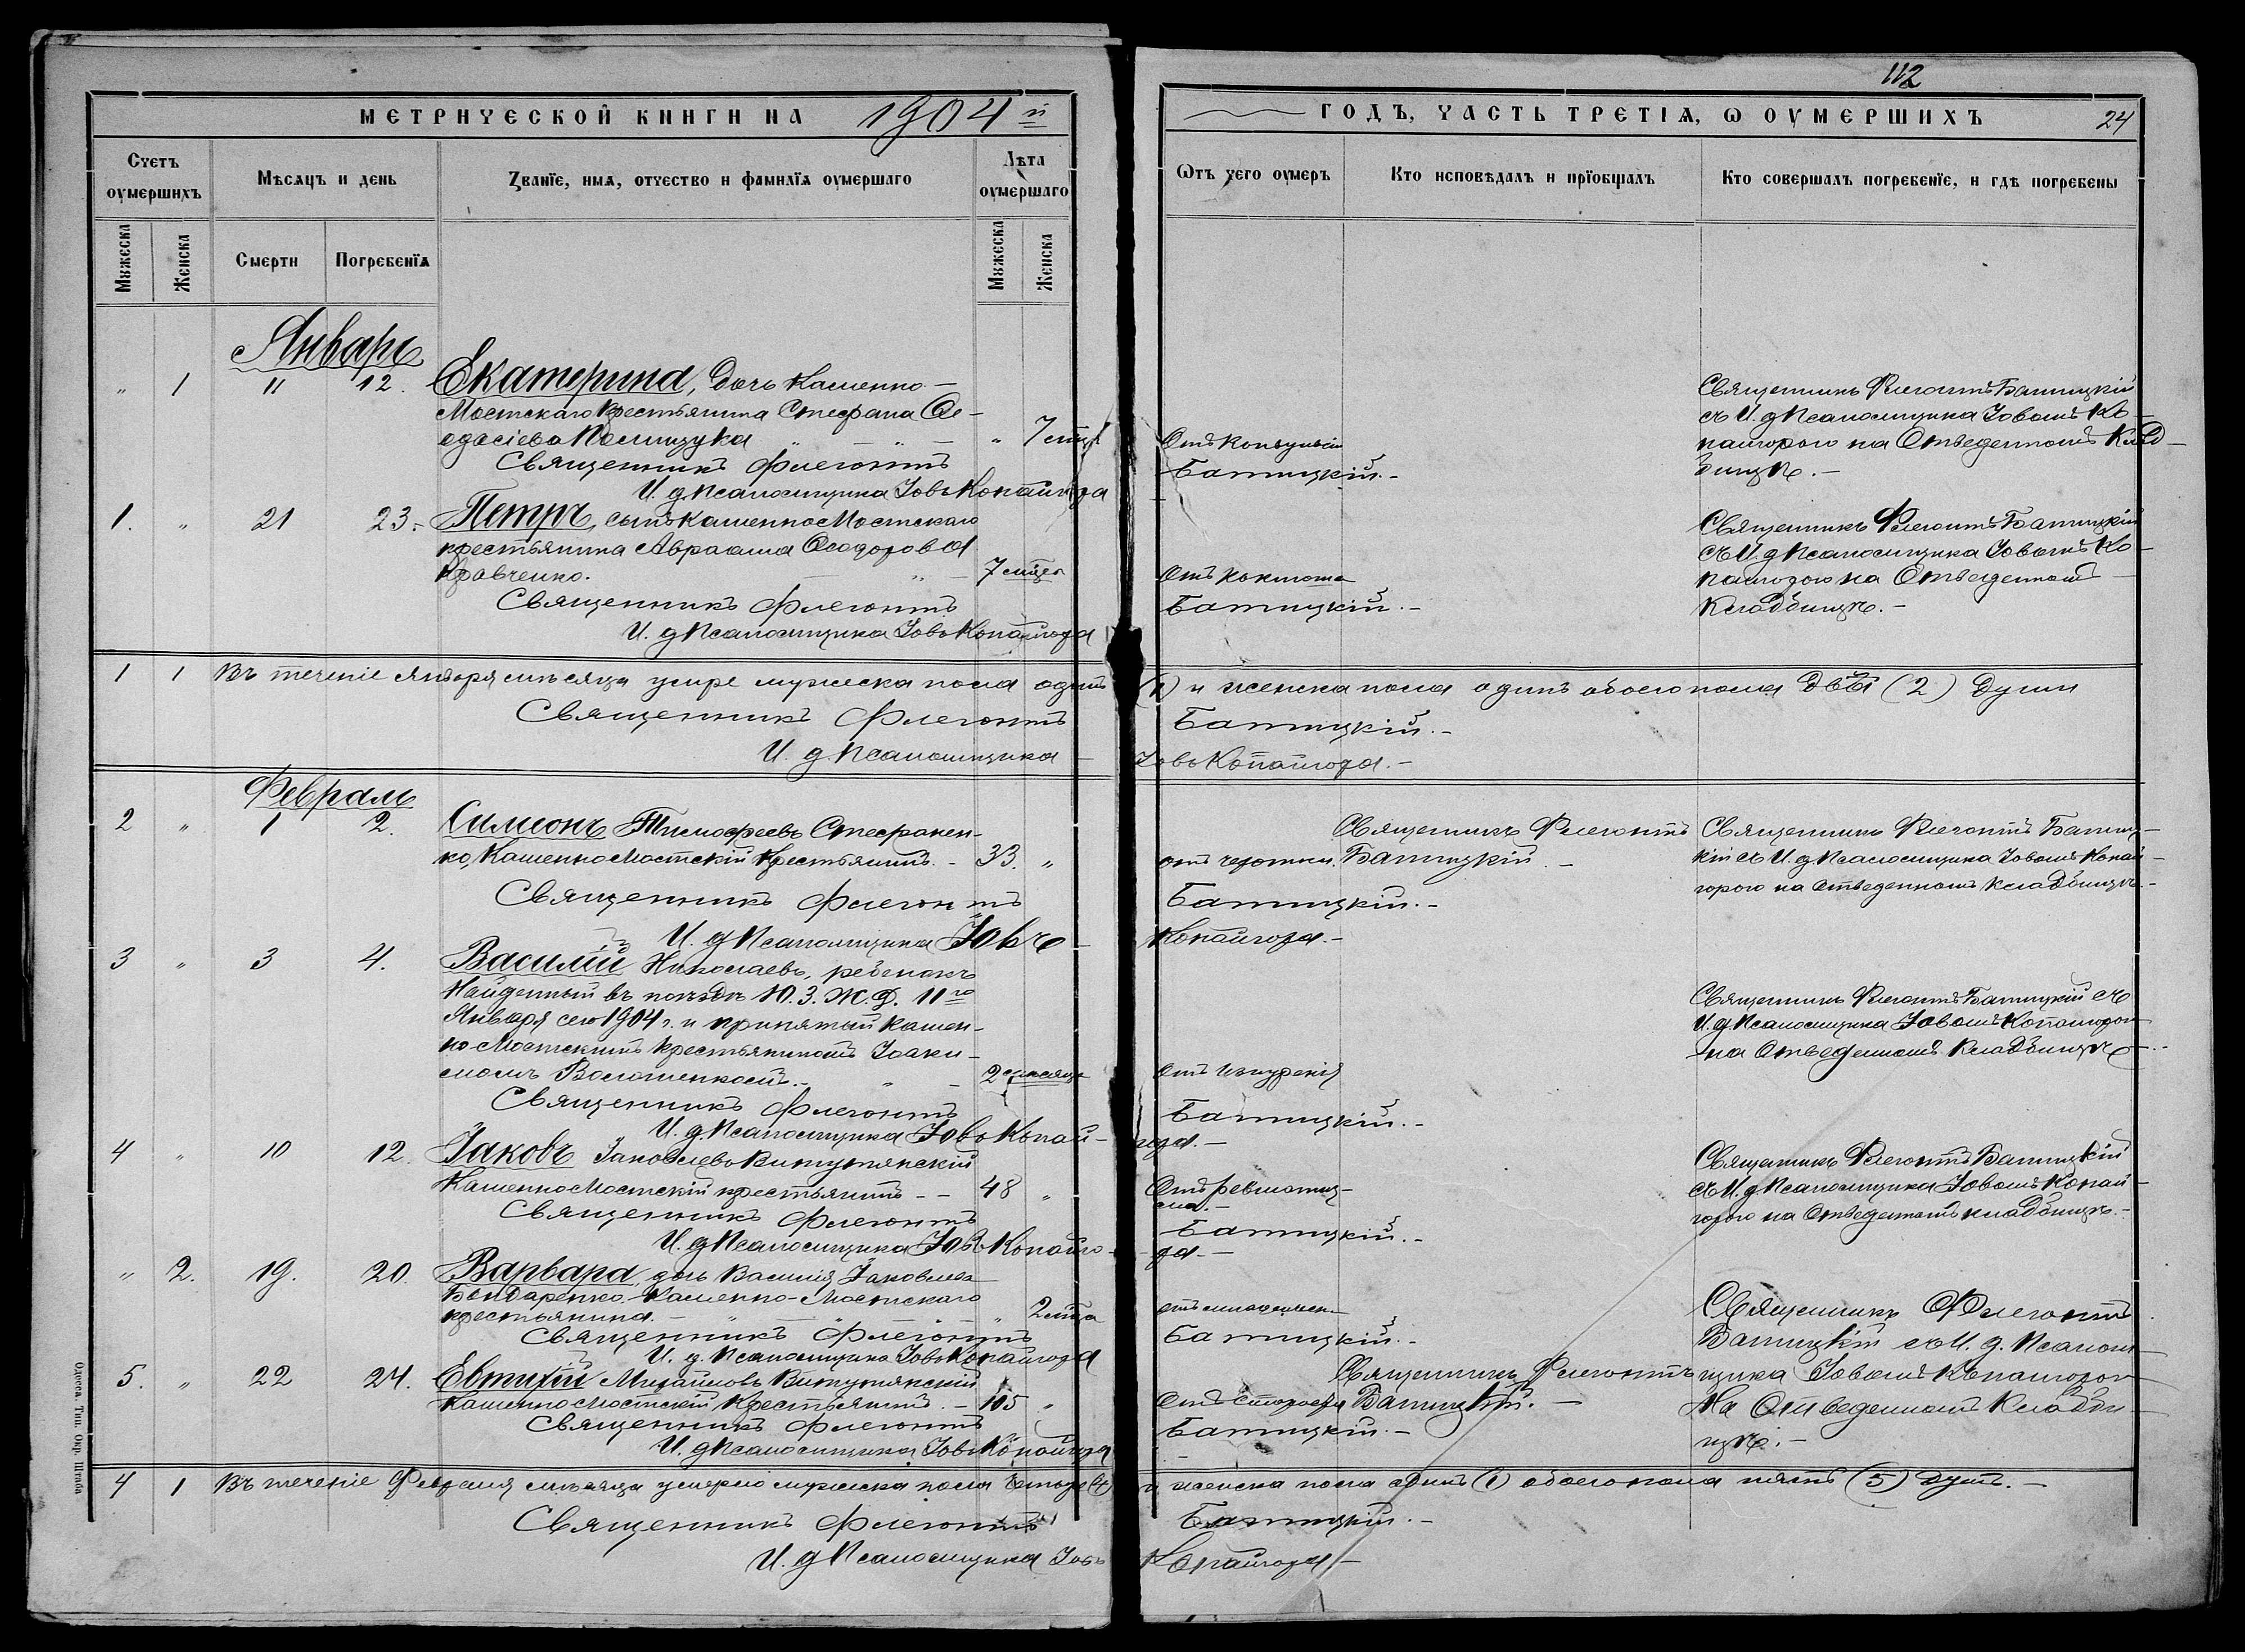 МЕТРИЧЕСКОЙ КНИГИ НА 1904 й
Счетъ умершихъ
Мѣсяцъ и день
Званіе, имя, отчество и фамилія умершаго
Лѣта умершаго
Мужеска
Женска
Смерти
Погребенія
Мужеска
Женска
Январь
" 1 11 12. Екатерина, дочь Каменно-
Мостскаго крестьянина Стефана Ѳе-
" 7 мѣс.
Священникъ Флегонтъ
И. д. Псаломщика Іовъ Копайгора
1. " 21 23. Петръ, сынъ Каменно Мостскаго
крестьянина Авраама Ѳеодорова
Кравченко. " 7 мѣсяц
Священникъ Флегонтъ
И. д. Псаломщика Іовъ Копайгора
1 1 Въ теченіе Января мѣсяца умре мужеска пола одинъ
Священникъ Флегонтъ
И. д. Псаломщика
Февраль
2 " 1 2. Симеонъ Тимофеевъ Стефанен-
ко, Каменно Мостскій Крестьянинъ. - 33. "
Священникъ Флегонтъ
И. д. Псаломщика Іовъ
3 " 3 4. Василій Николаевъ, ребенокъ
Найденный въ поѣздѣ Ю. З. Ж. Д. 11го
Января сего 1904 г. и принятый Камен-
но Мостскимъ крестьяниномъ Іоаки-
момъ Волошенкомъ. " 2 мѣсяца
Священникъ Флегонтъ
И. д. Псаломщика Іовъ Копай-
4 " 10 12. Іаковъ Іаковлевъ
Каменно Мостскій крестьянинъ - - 48 "
Священникъ Флегонтъ
И. д. Псаломщика Іовъ Копайго-
" 2. 19. 20. Варвара, дочь Василія Іаковлева
Бондаренко Каменно-Мостскаго
крестьянина. " 2 мѣсяца
Священникъ Флегонтъ
И. д. Псаломщика Іовъ Копайгора
5. " 22 24. Евтихій Михайловъ
Каменно Мостскій Крестьянинъ. - 105 "
Священникъ Флегонтъ
И. д. Псаломщика Іовъ Копайгора
4 1 Въ теченіе Февраля мѣсяца умерло мужеска пола четыре (4)
Священникъ Флегонтъ
И. д. Псаломщика Іовъ
Одесса Тип. Окр. Штаба
112
ГОДЪ, ЧАСТЬ ТРЕТІЯ, О УМЕРШИХЪ 24
Отъ чего умеръ
Кто исповѣдалъ и пріобщалъ
Кто совершалъ погребеніе, и гдѣ погребены
Священникъ Флегонтъ Батицкій
съ И. д. Псаломщика Іовомъ Ко-
пайгорою на Отведенномъ Клад-
Отъ конвульсій
бищѣ. -
Батицкій. -
Священникъ Флегонтъ Батицкій
съ И. д. Псаломщика Іовомъ Ко-
Отъ коклюша
пайгорою на Отведенномъ
Батицкій. -
Кладбищѣ. -
(1) и женска пола одинъ обоего пола двѣ (2) души
Батицкій. -
Іовъ Копайгора. -
Священникъ Флегонтъ
Священникъ Флегонтъ Батиц-
отъ чахотки. Батицкій. -
кій съ И. д. Псаломщика Іовомъ Копай-
горою на Отведенномъ кладбищѣ. -
Батицкій. -
Копайгора. -
Священникъ Флегонтъ Батицкій съ
И. д. Псаломщика Іовомъ Копайгорою
на Отведенномъ Кладбищѣ -
Отъ изнуренія
Батицкій. -
гора. -
Священникъ Флегонтъ Батицкій
съ И. д. Псаломщика Іовомъ Копай-
горою на Отведенномъ кладбищѣ. -
Отъ ревматиз-
ма. -
Батицкій. -
ра. -
Священникъ Флегонтъ
Батицкій. -
Батицкій съ И. д. Псалом-
Священникъ Флегонтъ
щика Іовомъ Копайгорою
Отъ старости Батицкій. -
На Отведенномъ Кладби-
Батицкій. -
щѣ. -
и женска пола одинъ (1) обоего пола пять (5) душъ. -
Батицкій. -
Копайгора -